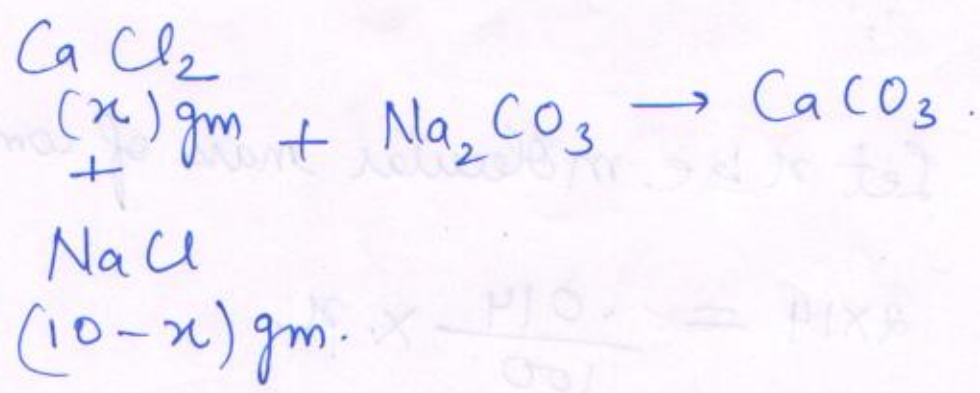 CaCl₂
(x)gm + Na₂CO₃ → CaCO₃.
+
NaCl
(10-x) gm.